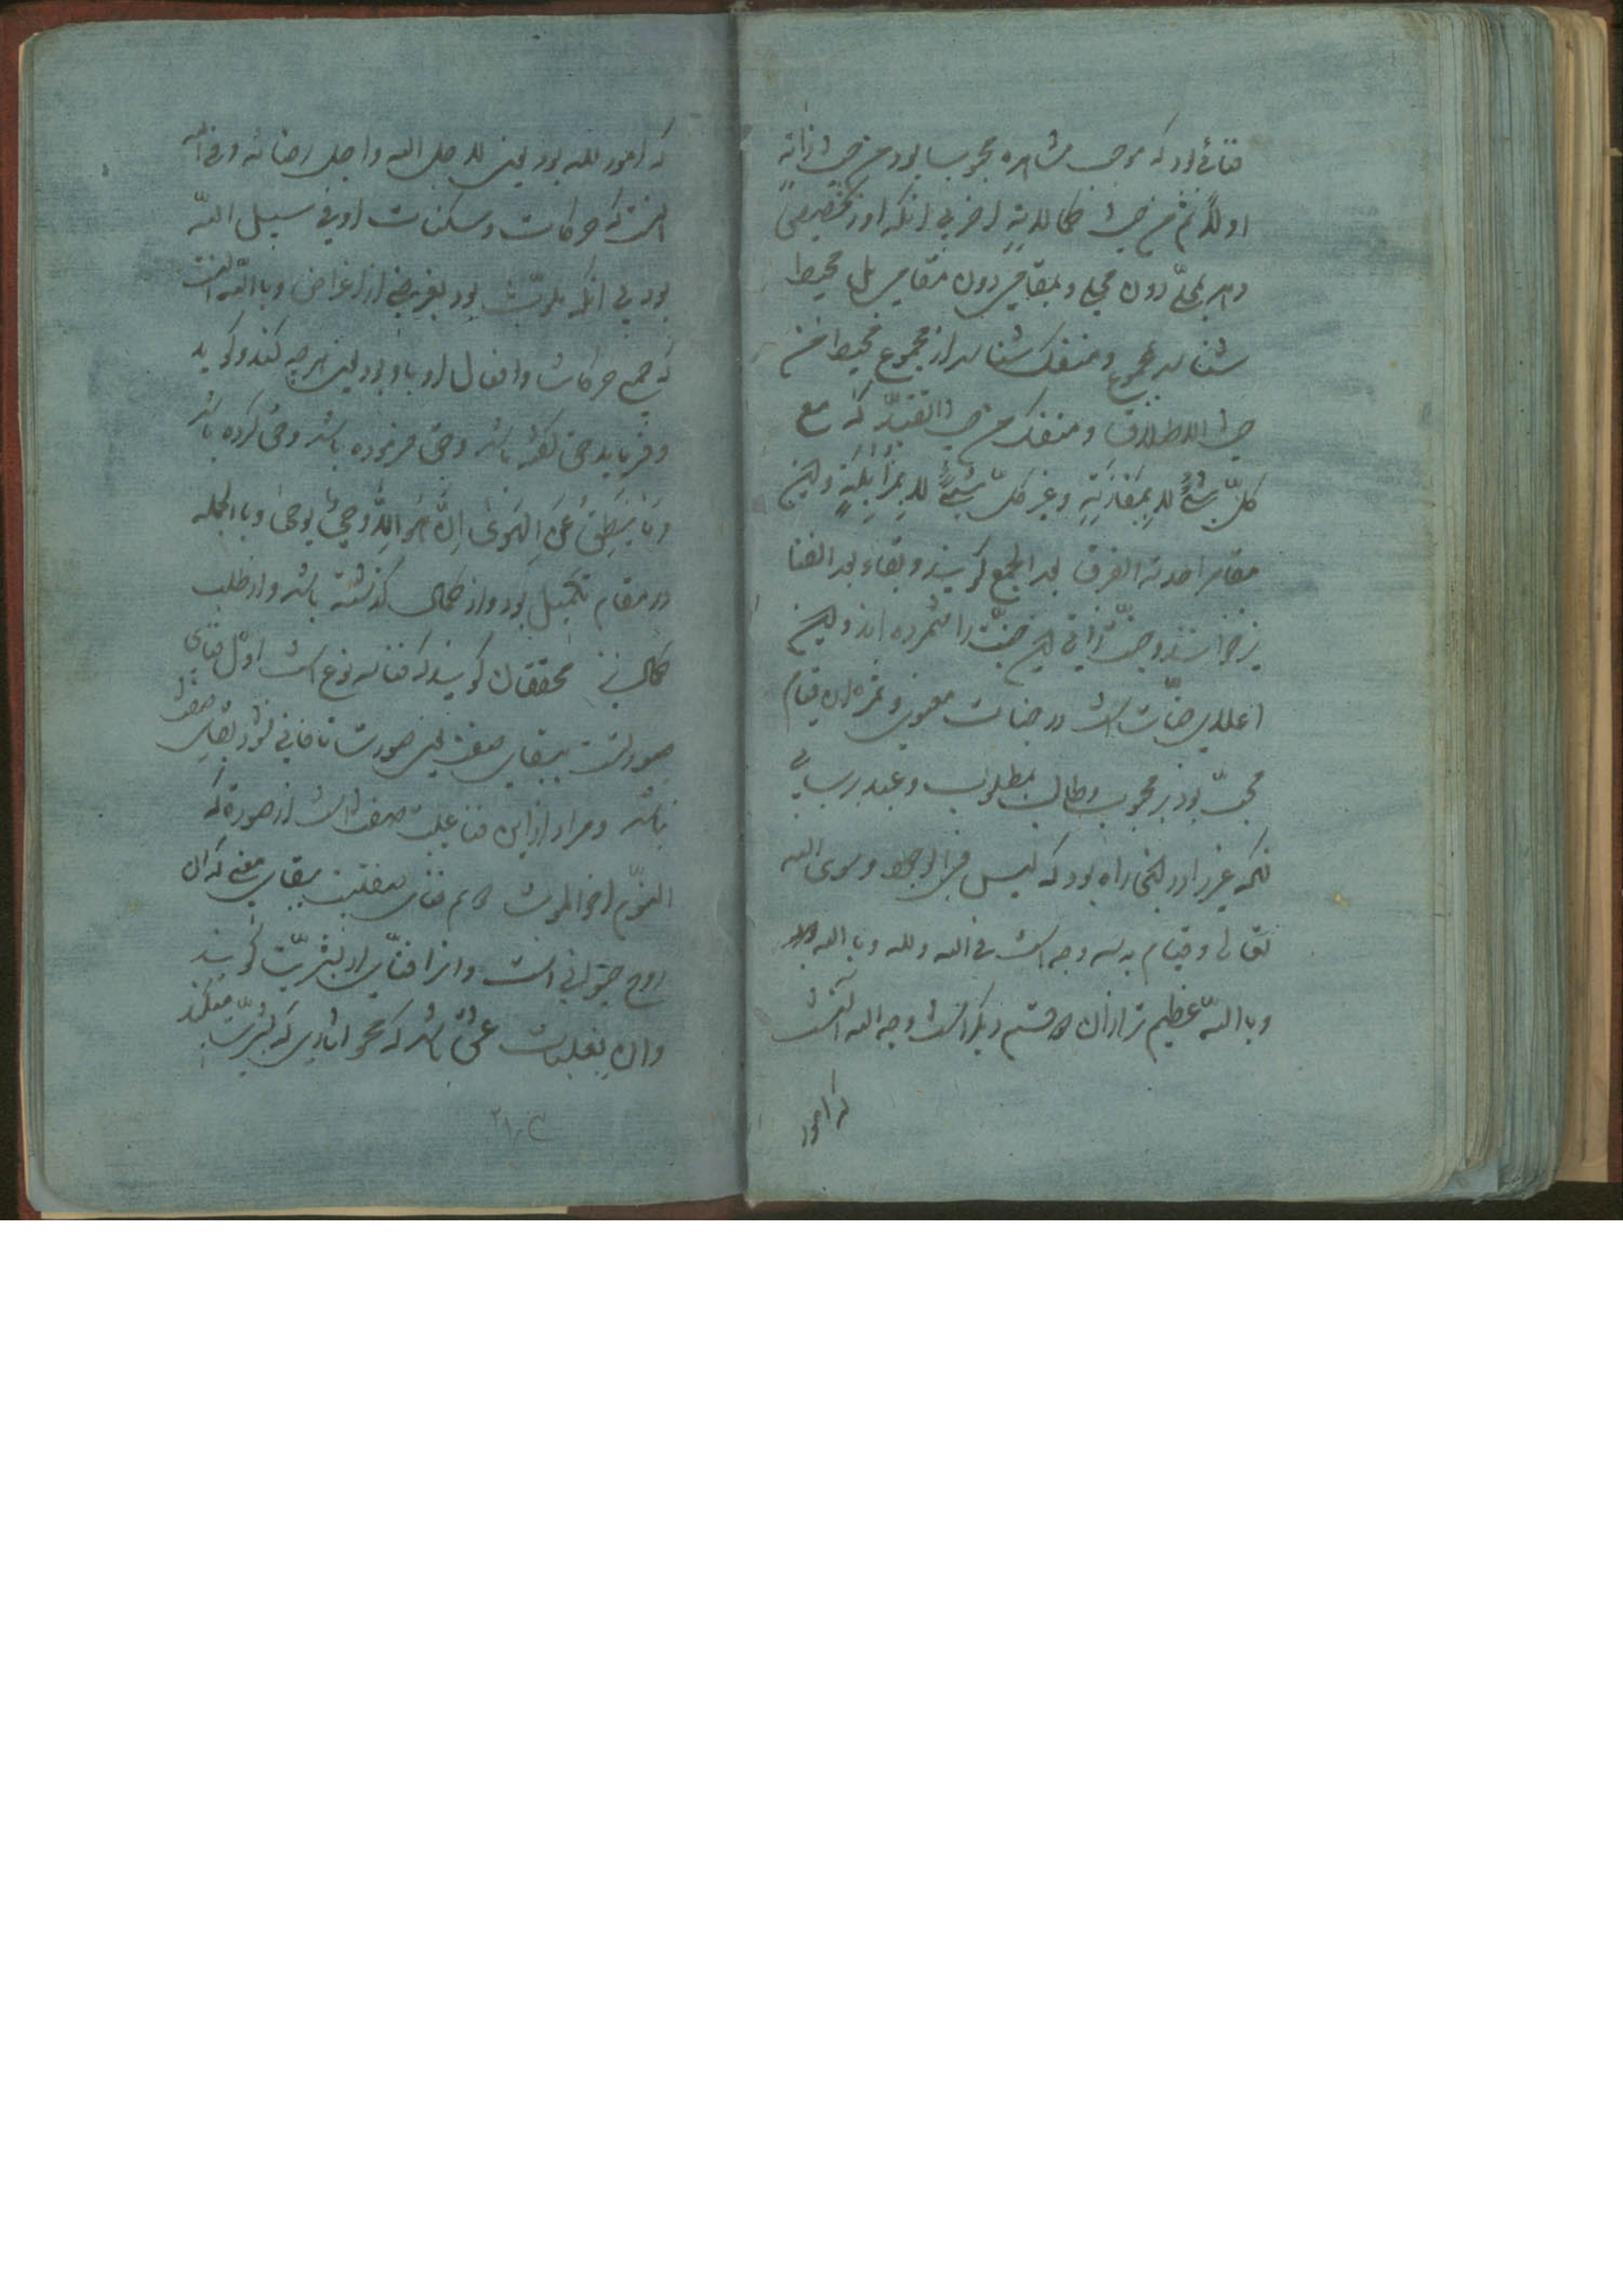 فنائی بود که موجب مشاهده محبوب بود من حیث ذاته
اولا ثم من حیث کمالاته اخری بی آنکه او را تخصیص
دهد بمحلّ دون محلی و بمقامی دون مقامی بل محیط
شناسد بمجموع و منفک شناسد از مجموع محیط من
حیث الاطلاق و منفک من حیث التقیّد که مع
کلّ شیءٍ لا بمقارنةٍ و غیر کلّ شیءٍ لا بمزایلةٍ و این
مقام را مرتبه الفرق بعد الجمع گویند و بقاء بعد الفنا
نیز خوانند و جنّت ذاتی این جنّت را شمرده اند و این
اعلای جنّات است در جنات معنوی و ثمره این قیام
محبّ بود بر محبوب و طالب بمطلوب و عبد برب
که غیر او در لیس فی الوجود سوی الله
تعالی و قیام به سه وجه است فی الله و لله و بالله
و بالله عظیم تر از آن دو قسم دیگر است وجه الله آنست
که امور
که امور لله بود یعنی لاجل الله و اجل رضائه و فی الله
آنست که حرکات و سکنات او فی سبیل الله
بود بی آنکه ملوّث بود بغرضی از اغراض و بالله آنست
که جمیع حرکات و افعال او باو بود یعنی هرچه کند و گوید
و فرماید حق گفته باشد و حق فرموده باشد و حق کرده باشد
و ما ینطق عن الهوی ان هو الا وحی یوحی و بالجمله
در مقام تکمیل بود و از کمال گذشته باشد و از طلب
کمال نیز محققان گویند که فنا سه نوع است اول فنای
صورتست ببقای صفت یعنی صورت تا فانی نشود بقای صفت
نباشد و مراد از این فنا غلبت صفت است از صورة که
النوم اخ الموت دویم فنای صفتست ببقای معنی که آن
روح حیوانی است و انرا فنای از بشریّت گویند
و آن بغلبات عشق باشد که محو اثار که بشریّت میکند